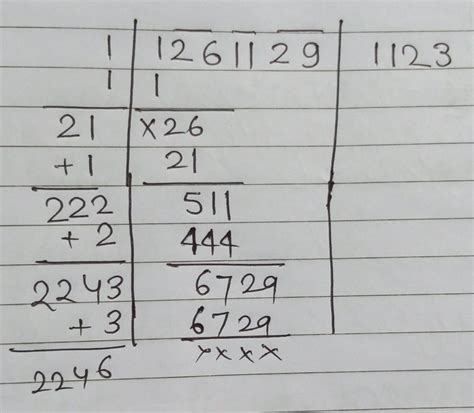 1 1261129 1123
1 1
21 ×26
+1 21
222 511
+2 444
2243 6729
+3 6729
2246 ××××